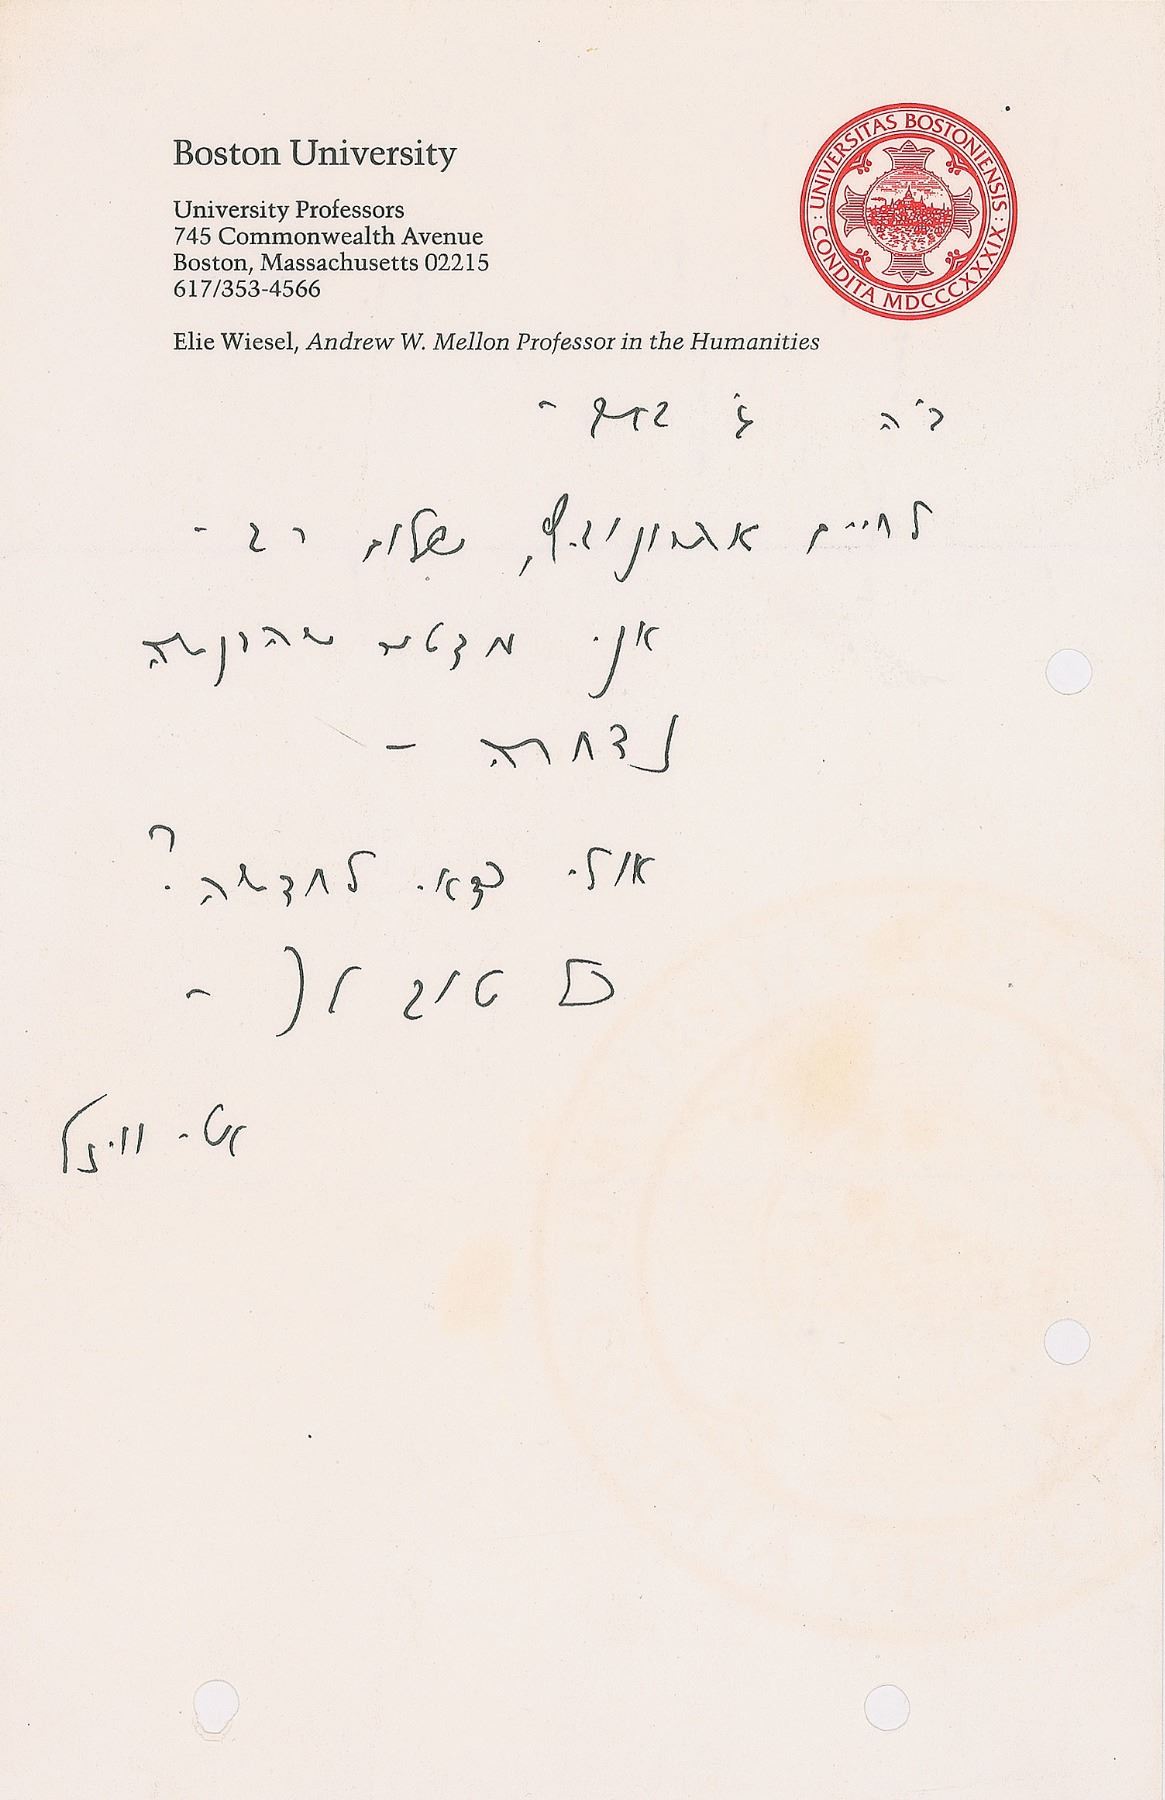 Boston University
University Professors
745 Commonwealth Avenue
Boston, Massachusetts 02215
617/353-4566
Elie Wiesel, Andrew W. Mellon Professor in the Humanities
: UNIVERSITAS BOSTONIENSIS : CONDITA MDCCCXXXIX
ב"ה
לחיים אהרונוביץ, שלום רב -
אני מצטער שהרשימה
נדחתה -
אולי כדאי לחדשה?
כל טוב לך -
אלי ויזל